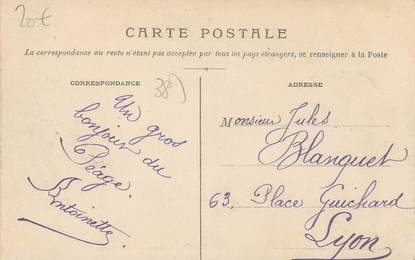 20€
CARTE POSTALE
La correspondance au recto n'étant pas acceptée par tous les pays étrangers, se renseigner à la Poste
CORRESPONDANCE
38)
Un gros
bonjour du
Péage.
Antoinette.
ADRESSE
Monsieur Jules
Blanquet
63, Place Guichard
Lyon